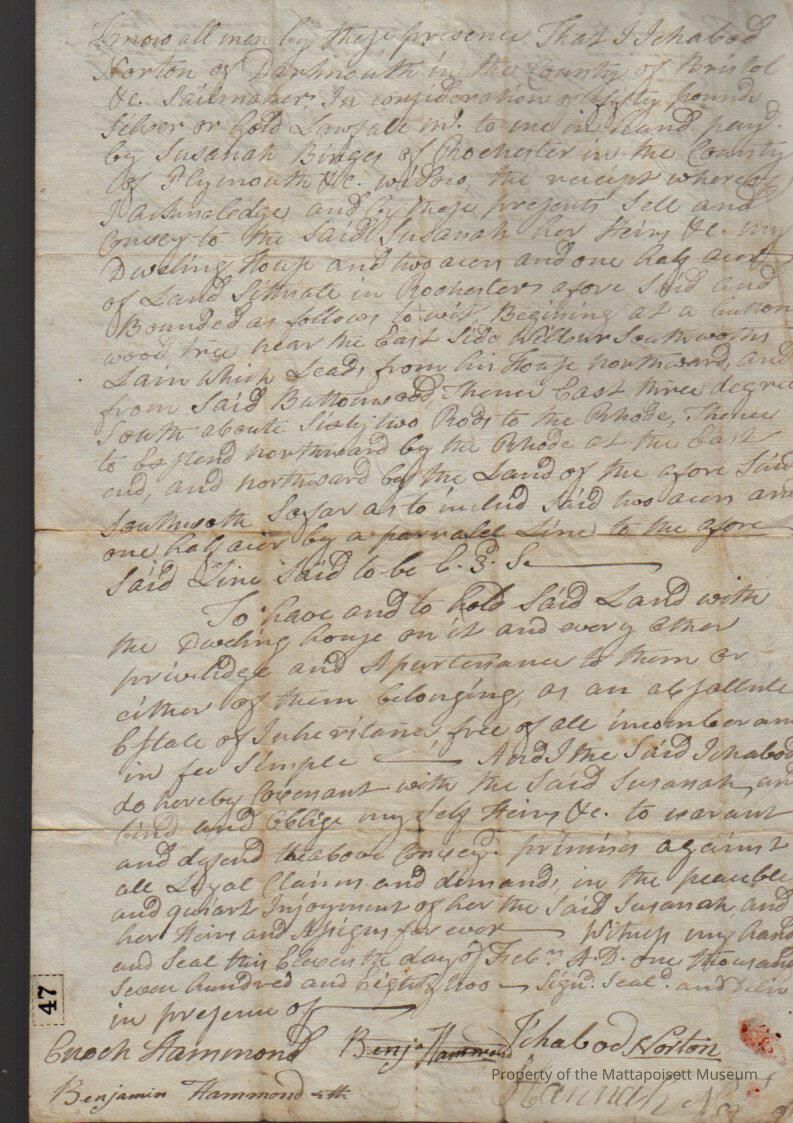 Know all men by these presence That I Ichabod
Norton of Dartmouth in the County of Bristol
&c. Sailmaker, In consideration of fifty pounds
Silver or Gold Lawfull m^y. to me in hand payd.
by Susanah Binges of Rochester in the County
of Plymouth &c. widdow, the receipt whereof
I acknoledge and by these presents Sell and
Convey to the Said Susanah her Heirs &c. my
Dweling House and two acers and one half acer
of Land Sittuate in Rochester afore Said and
Bounded as follows to wit, Begining at a button
wood tree near the East Side Wilbur Southworths
Lain which Leads from his House northward, and
from Said Buttonwood, Thence East three degree
South aboute Sixty two Rods to the Rhode, Thence
to Extend northward by the Rhode at the East
end, and northward by the Land of the afore Said
Southworth So far as to includ Said two acers and
one half acer by a parralel Line to the afore
Said Line Said to be E. 3. S.
To have and to hold Said Land with
the Dweling house on it and every other
priviledge and Apurtenance to them or
either of them belonging, as an absollute
Estate of Inheritance, free of all incomberan
in fee Simple And I the Said Ichabod
do hereby Covenant with the Said Susanah, an
bind and Oblige my Self Heirs &c. to warant
and defend the above Convey^d. primises against
all Legal Claims and demands, in the peaceble
and quiart Injoyment of her the Said Susanah and
her Heirs and Assigns for ever Witness my hand
and Seal this Eleventh day of Feb^ry A.D. one thousand
Seven hundred and Eighty two Sign^d. Seal^d. and Deliv
in presence of
Enoch Hammond Benj^a Hammond Ichabod Norton
Benjamin Hammond 4th Hannah Nor
47
Property of the Mattapoisett Museum